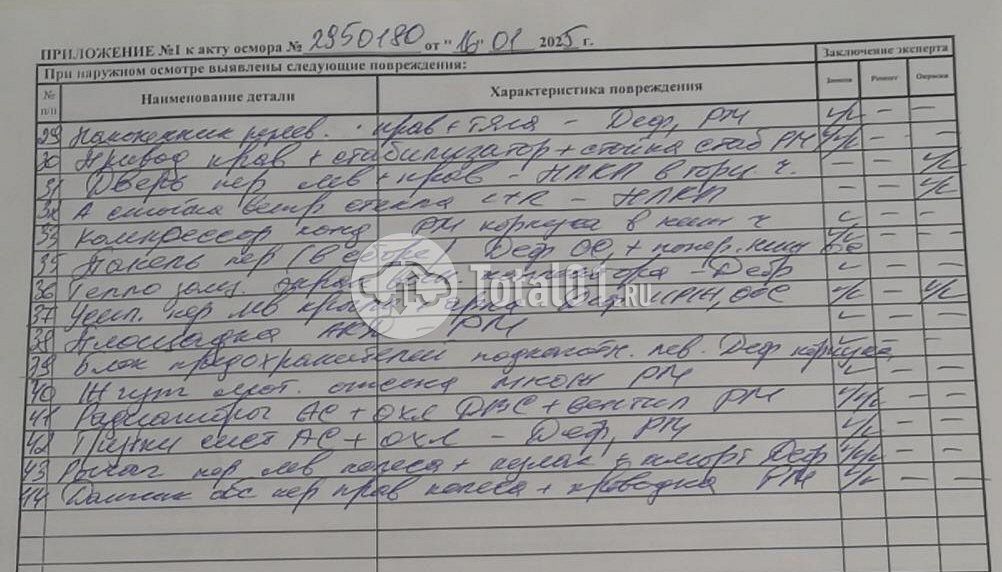 ПРИЛОЖЕНИЕ №1 к акту осмора № 2950180 от "16" 01 2025 г.
При наружном осмотре выявлены следующие повреждения: Заключение эксперта
№ п/п Наименование детали Характеристика повреждения Замена Ремонт Окраска
29 Наконечник рулев. прав + тяга - Деф, РМ ч/с — —
30 Привод прав + стабилизатор + стойка стаб РМ ч/с — —
31 Дверь пер лев + прав - НЛКП в торц. ч. — — ч/с
32 А стойка ветр стекла L+R - НЛКП — — ч/с
33 Компрессор конд РМ корпуса в ч — —
35 Панель пер (в сборе) Деф ОС, + попер.
36 Тепло экран - Деф — —
37 Усил. пер лев ч/с — ч/с
38 Площадка АКБ РМ — —
39 Блок предохранителей подкапотн. лев. Деф корпуса
40 Жгут мот. отсека РМ — —
41 Радиаторы АС + охл ДВС + вентил РМ ч/с — —
42 Трубки сист АС + охл - Деф, РМ ч/с — —
43 Рычаг пер лев колеса + кулак + аморт Деф ч/с — —
44 Датчик абс пер прав колеса + проводка РМ ч/с — —
Total01.ru